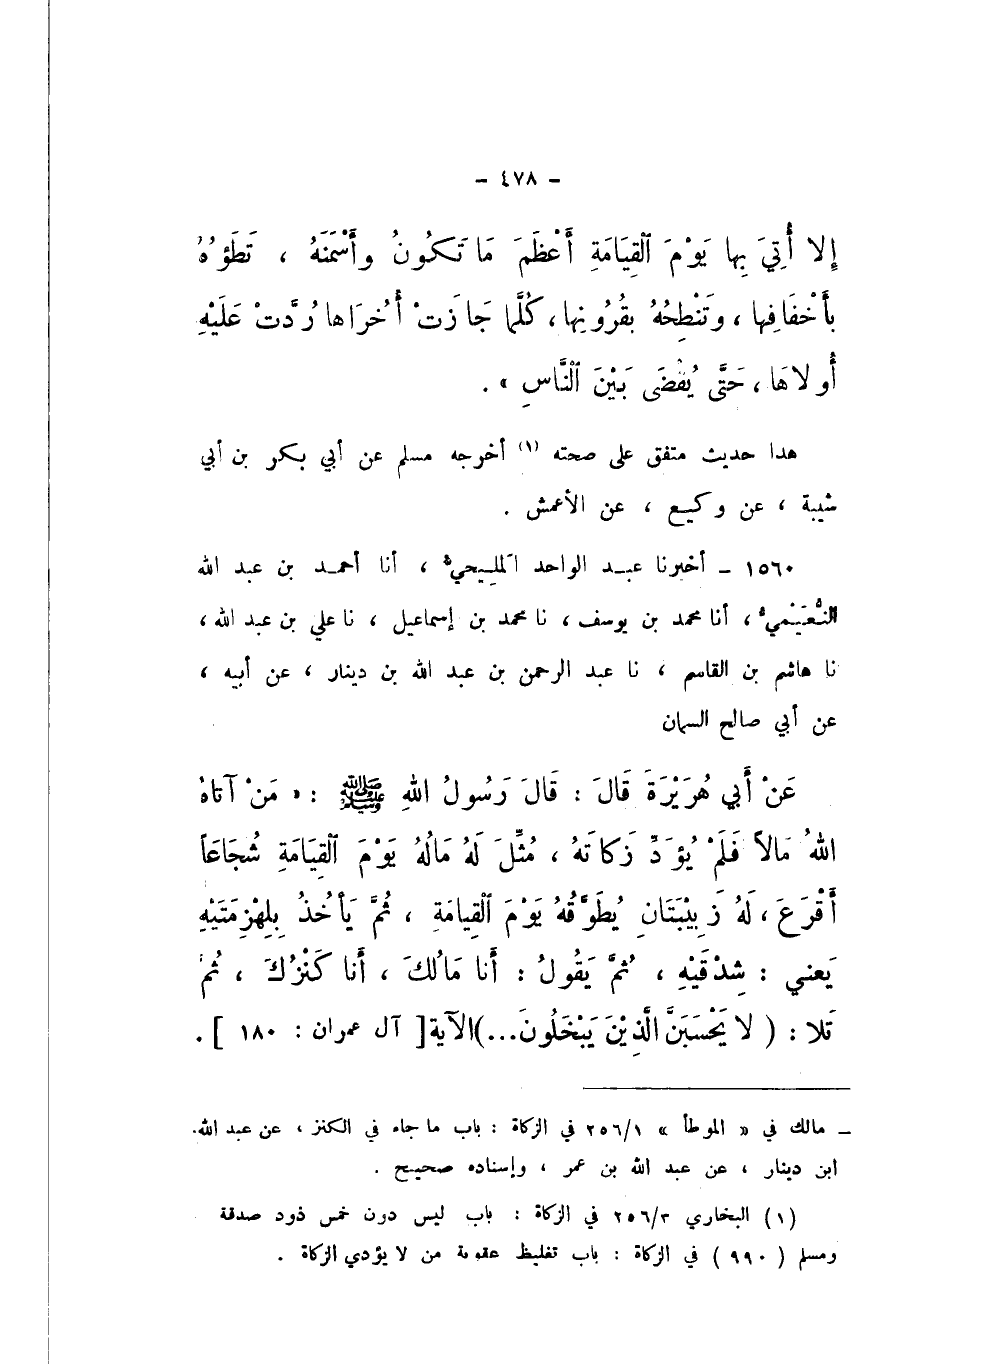 - ٤٧٨ -
إِلا أُتِيَ بِها يَوْمَ ٱلْقِيَامَةِ أَعْظَمَ مَا تَكُونُ وأَسْمَنَهُ ، تَطَؤُهُ
بأَخْفَافِها ، وتَنْطِحُهُ بقُرُونِها ، كُلَّما جَازَتْ أُخرَاها رُدَّتْ عَلَيْهِ
أُولاهَا ، حَتَّى يُقْضَى بَيْنَ ٱلنَّاسِ » .
هذا حديث متفق على صحته (١) أخرجه مسلم عن أبي بكر بن أبي
شيبة ، عن وكيع ، عن الأعمش .
١٥٦٠ – أخبرنا عبد الواحد المَليحيُّ ، أنا أحمد بن عبد الله
النُّعَيْميُّ ، أنا محمد بن يوسف ، نا محمد بن إسماعيل ، نا علي بن عبد الله ،
نا هاشم بن القاسم ، نا عبد الرحمن بن عبد الله بن دينار ، عن أبيه ،
عن أبي صالح السمان
عَنْ أَبي هُرَيْرَةَ قَالَ : قَالَ رَسُولُ اللهِ ﷺ : « مَنْ آتاهُ
اللهُ مَالاً فَلَمْ يُؤَدِّ زَكاتَهُ ، مُثِّلَ لَهُ مَالُهُ يَوْمَ ٱلْقِيَامَةِ شُجَاعَاً
أَقْرَعَ ، لَهُ زَبِيْبَتَانِ يُطَوَّقُهُ يَوْمَ ٱلْقِيامَةِ ، ثُمَّ يَأْخُذُ بِلِهْزِمَتَيْهِ
يَعني : شِدْقَيْهِ ، ثُمَّ يَقُولُ : أَنا مَالُكَ ، أَنا كَنْزُكَ ، ثُمَّ
تَلا : ( لا يَحْسَبَنَّ الَّذِيْنَ يَبْخَلُونَ...)الآية[ آل عمران : ١٨٠ ] .
– مالك في « الموطأ » ٢٥٦/١ في الزكاة : باب ما جاء في الكنز ، عن عبد الله.
ابن دينار ، عن عبد الله بن عمر ، وإسناده صحيح .
(١) البخاري ٢٥٦/٣ في الزكاة : باب ليس دون خمس ذود صدقة
ومسلم ( ٩٩٠ ) في الزكاة : باب تغليظ عقوبة من لا يؤدي الزكاة .